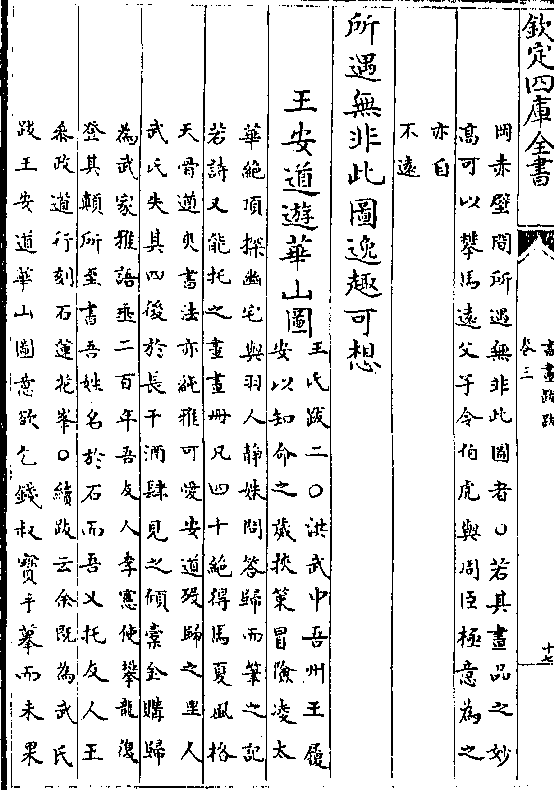 欽定四庫全書
書畫跋跋
卷三
十七
岡赤壁間所遇無非此圖者○若其畫品之妙
高可以攀馬遠父子令伯虎與周臣極意為之
亦自
不遠
所遇無非此圖逸趣可想
王安道遊華山圖
王氏跋二○洪武中吾州王履
安以知命之歲挾策冒險凌太
華絶頂探幽宅與羽人静姝問答歸而筆之記
若詩又能托之畫畫册凡四十絶得馬夏風格
天骨遒爽書法亦純雅可愛安道殁歸之里人
武氏失其四後於長干酒肆見之傾橐金購歸
為武家雅語垂二百年吾友人李憲使攀龍復
登其巔所至書吾姓名於石而吾又托友人王
叅政道行刻石蓮花峯○續跋云余既為武氏
跋王安道華山圖意欲乞錢叔寳手摹而未果